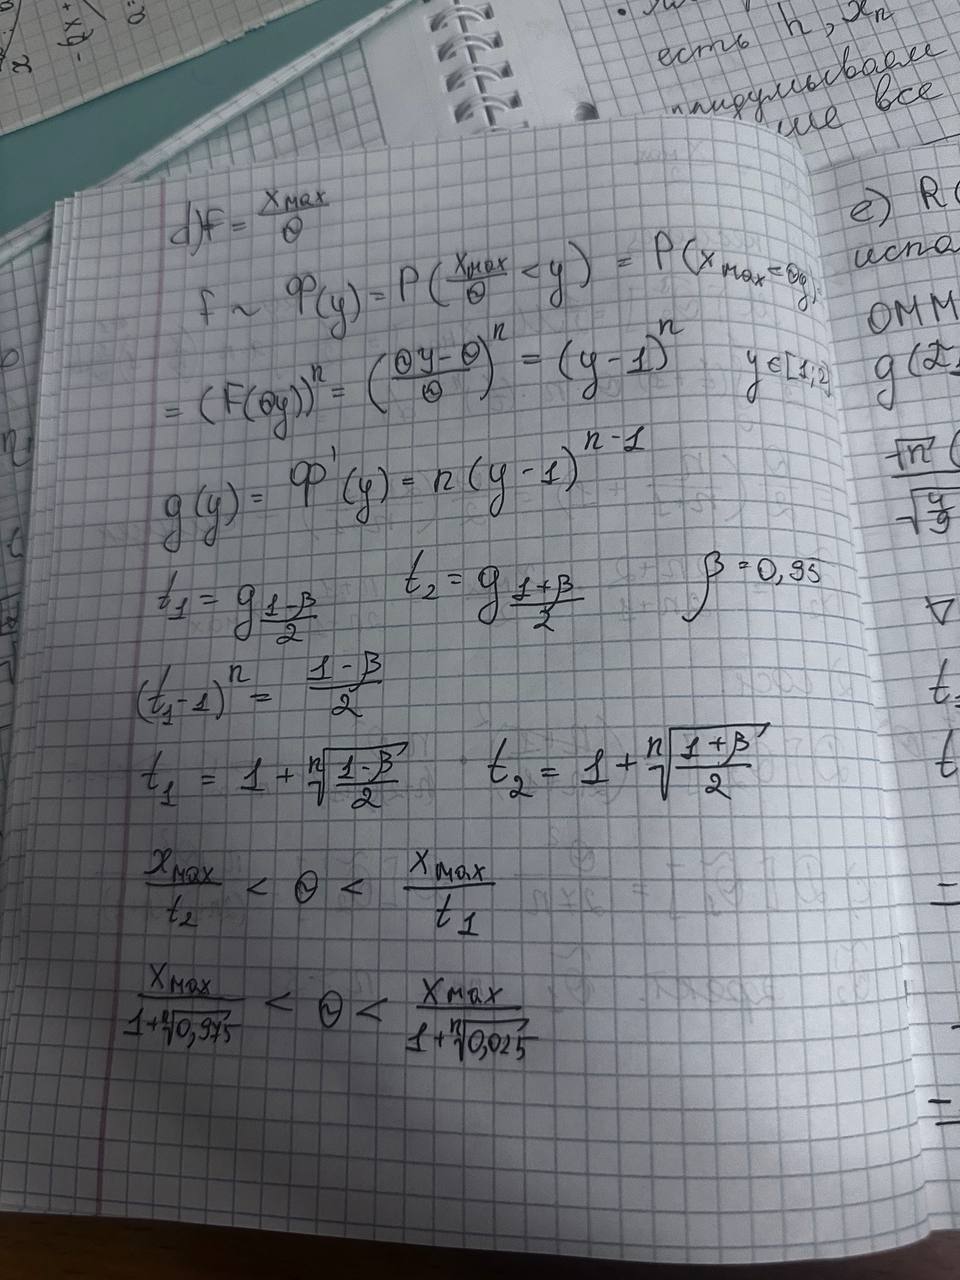 есть n, xₙ
придумываем
все
d) f = xmax/θ
f ~ Φ(y) = P(xmax/θ < y) = P(xmax < θy) =
= (F(θy))ⁿ = ((θy - θ)/θ)ⁿ = (y - 1)ⁿ y ∈ [1; 2]
g(y) = Φ'(y) = n(y - 1)ⁿ⁻¹
t₁ = g_{(1-β)/2} t₂ = g_{(1+β)/2} β = 0,95
(t₁ - 1)ⁿ = (1 - β)/2
t₁ = 1 + ⁿ√((1-β)/2) t₂ = 1 + ⁿ√((1+β)/2)
xmax/t₂ < θ < xmax/t₁
xmax/(1+ⁿ√0,975) < θ < xmax/(1+ⁿ√0,025)
e) R(
ОММ
g(
√n (